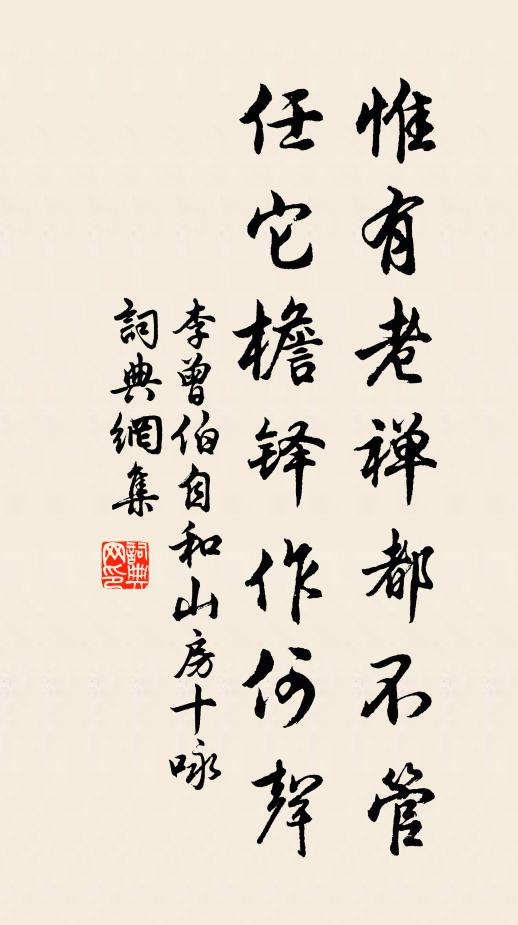 惟有老禅都不管
任它檐铎作何聲
李曾伯自和山房十咏
詞典網集
詞典網印